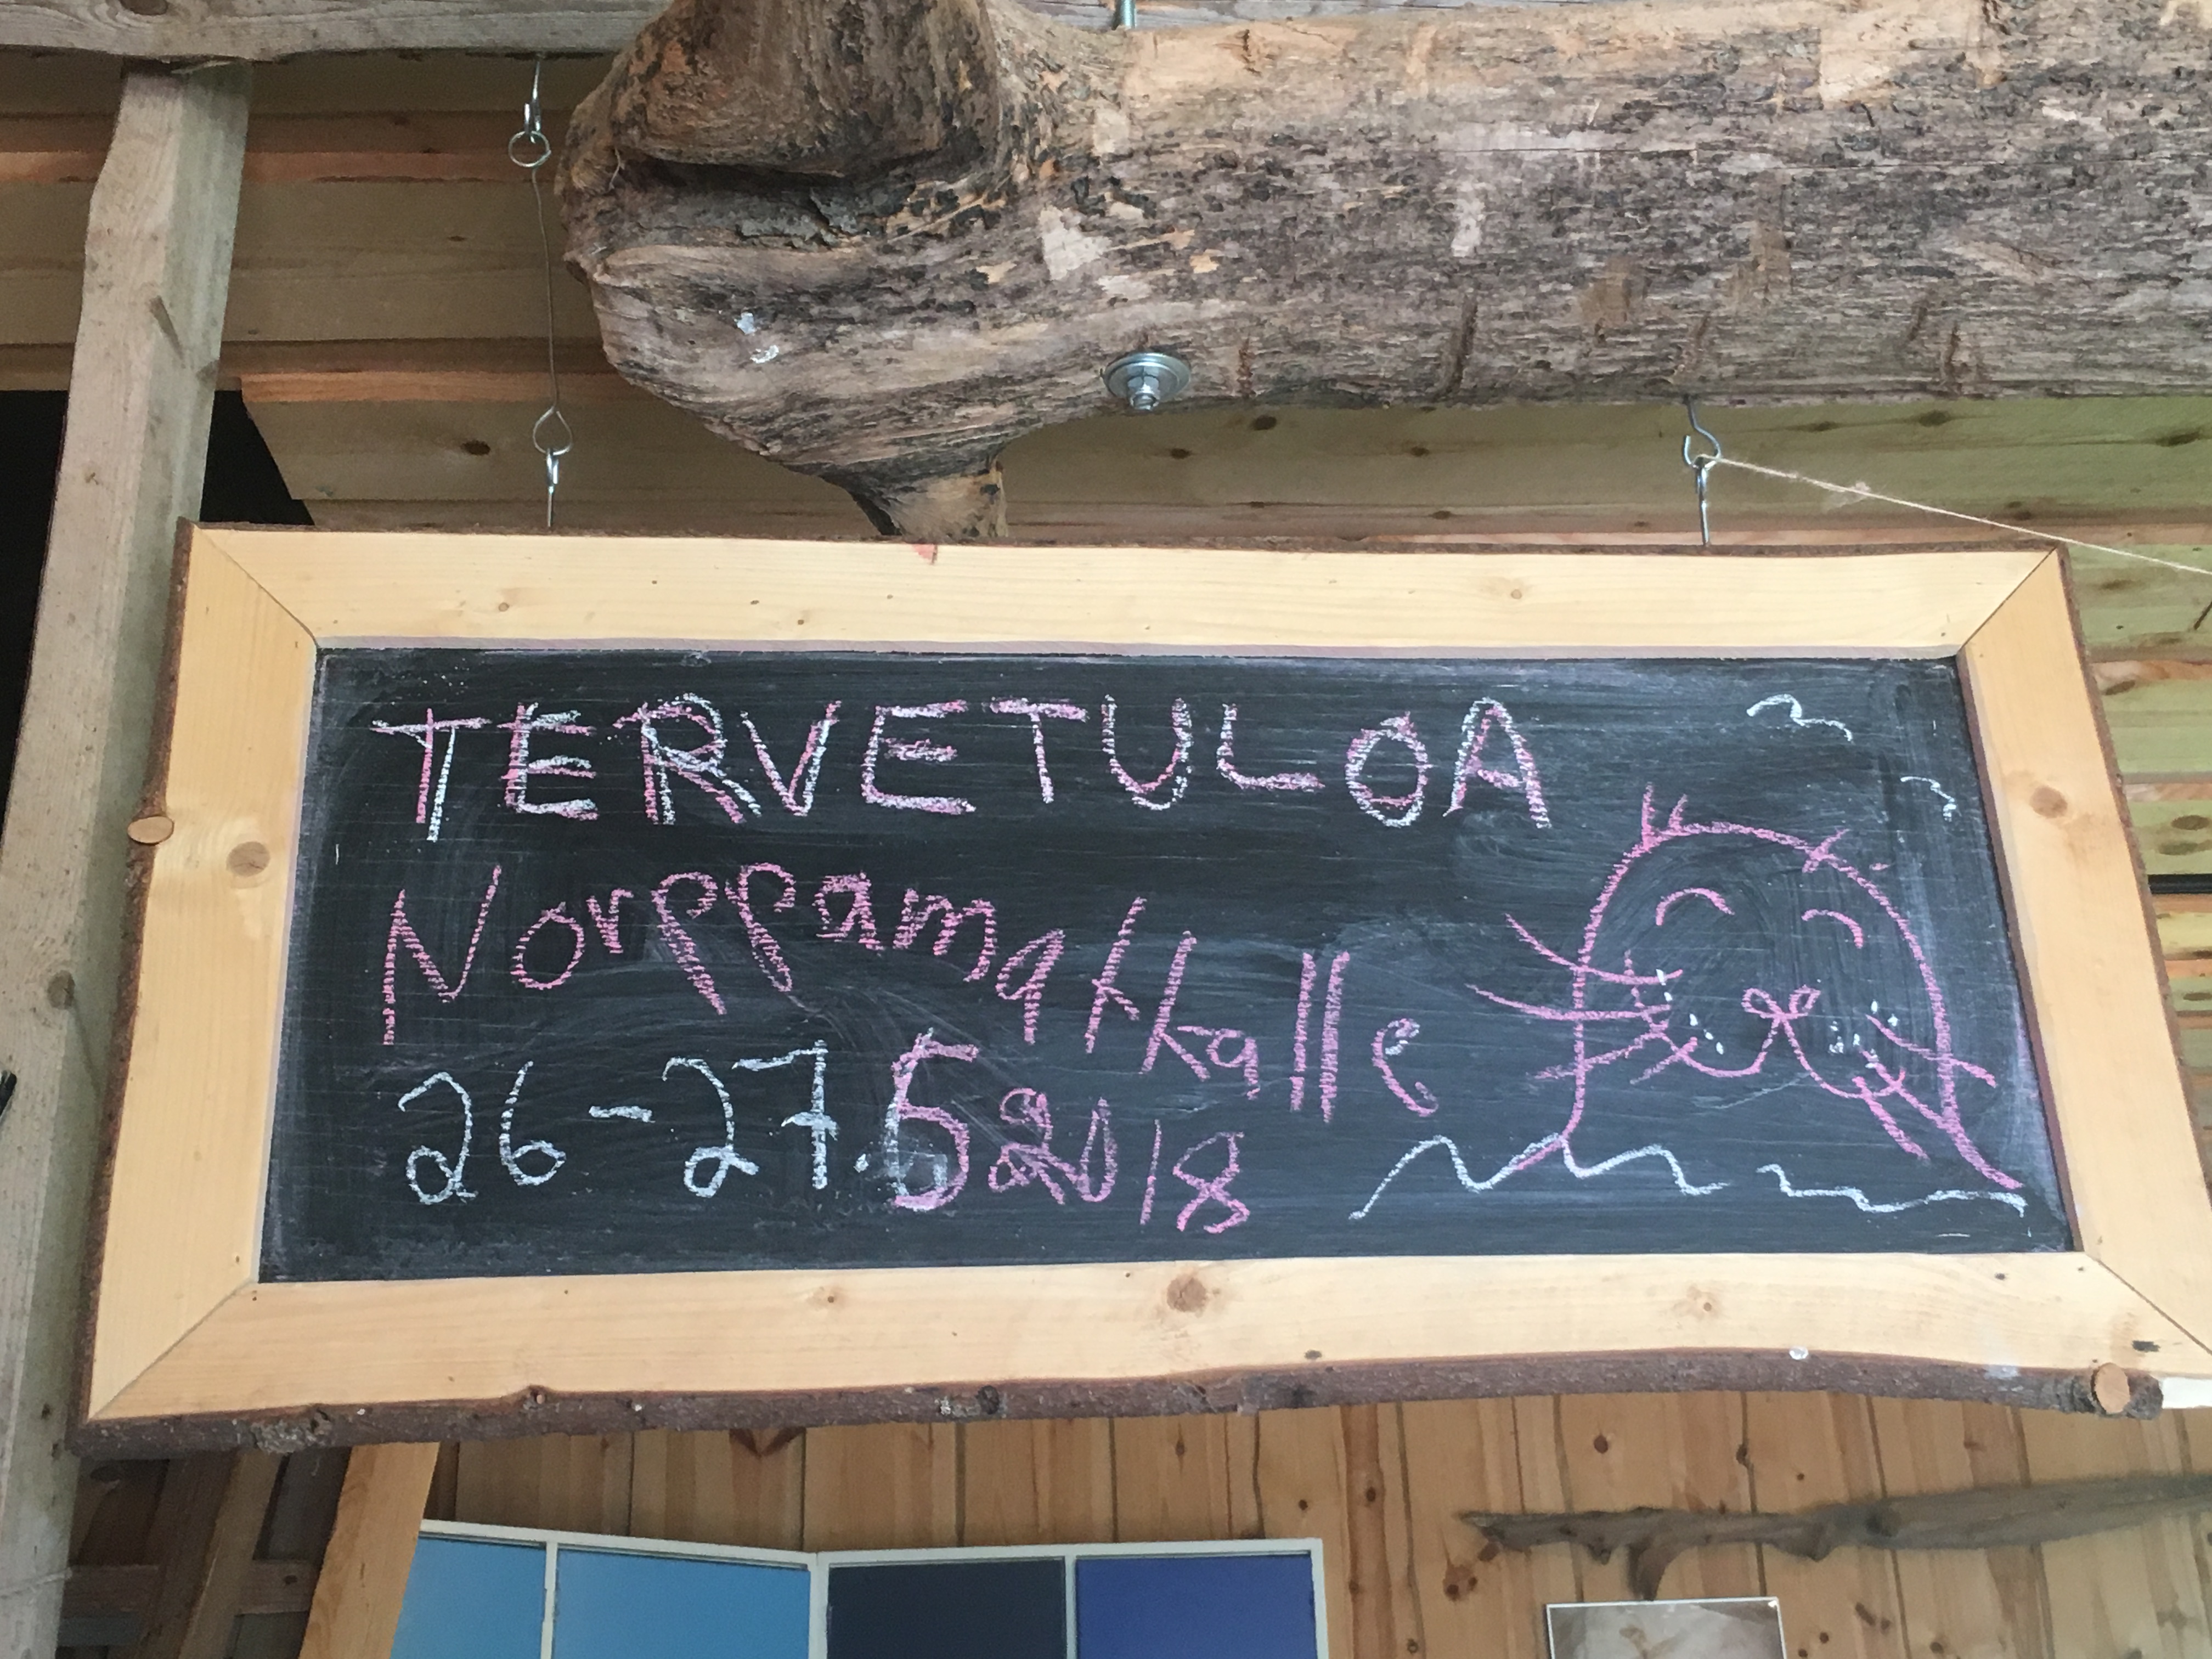 TERVETULOA
Norppamatkalle
26-27.5 2018